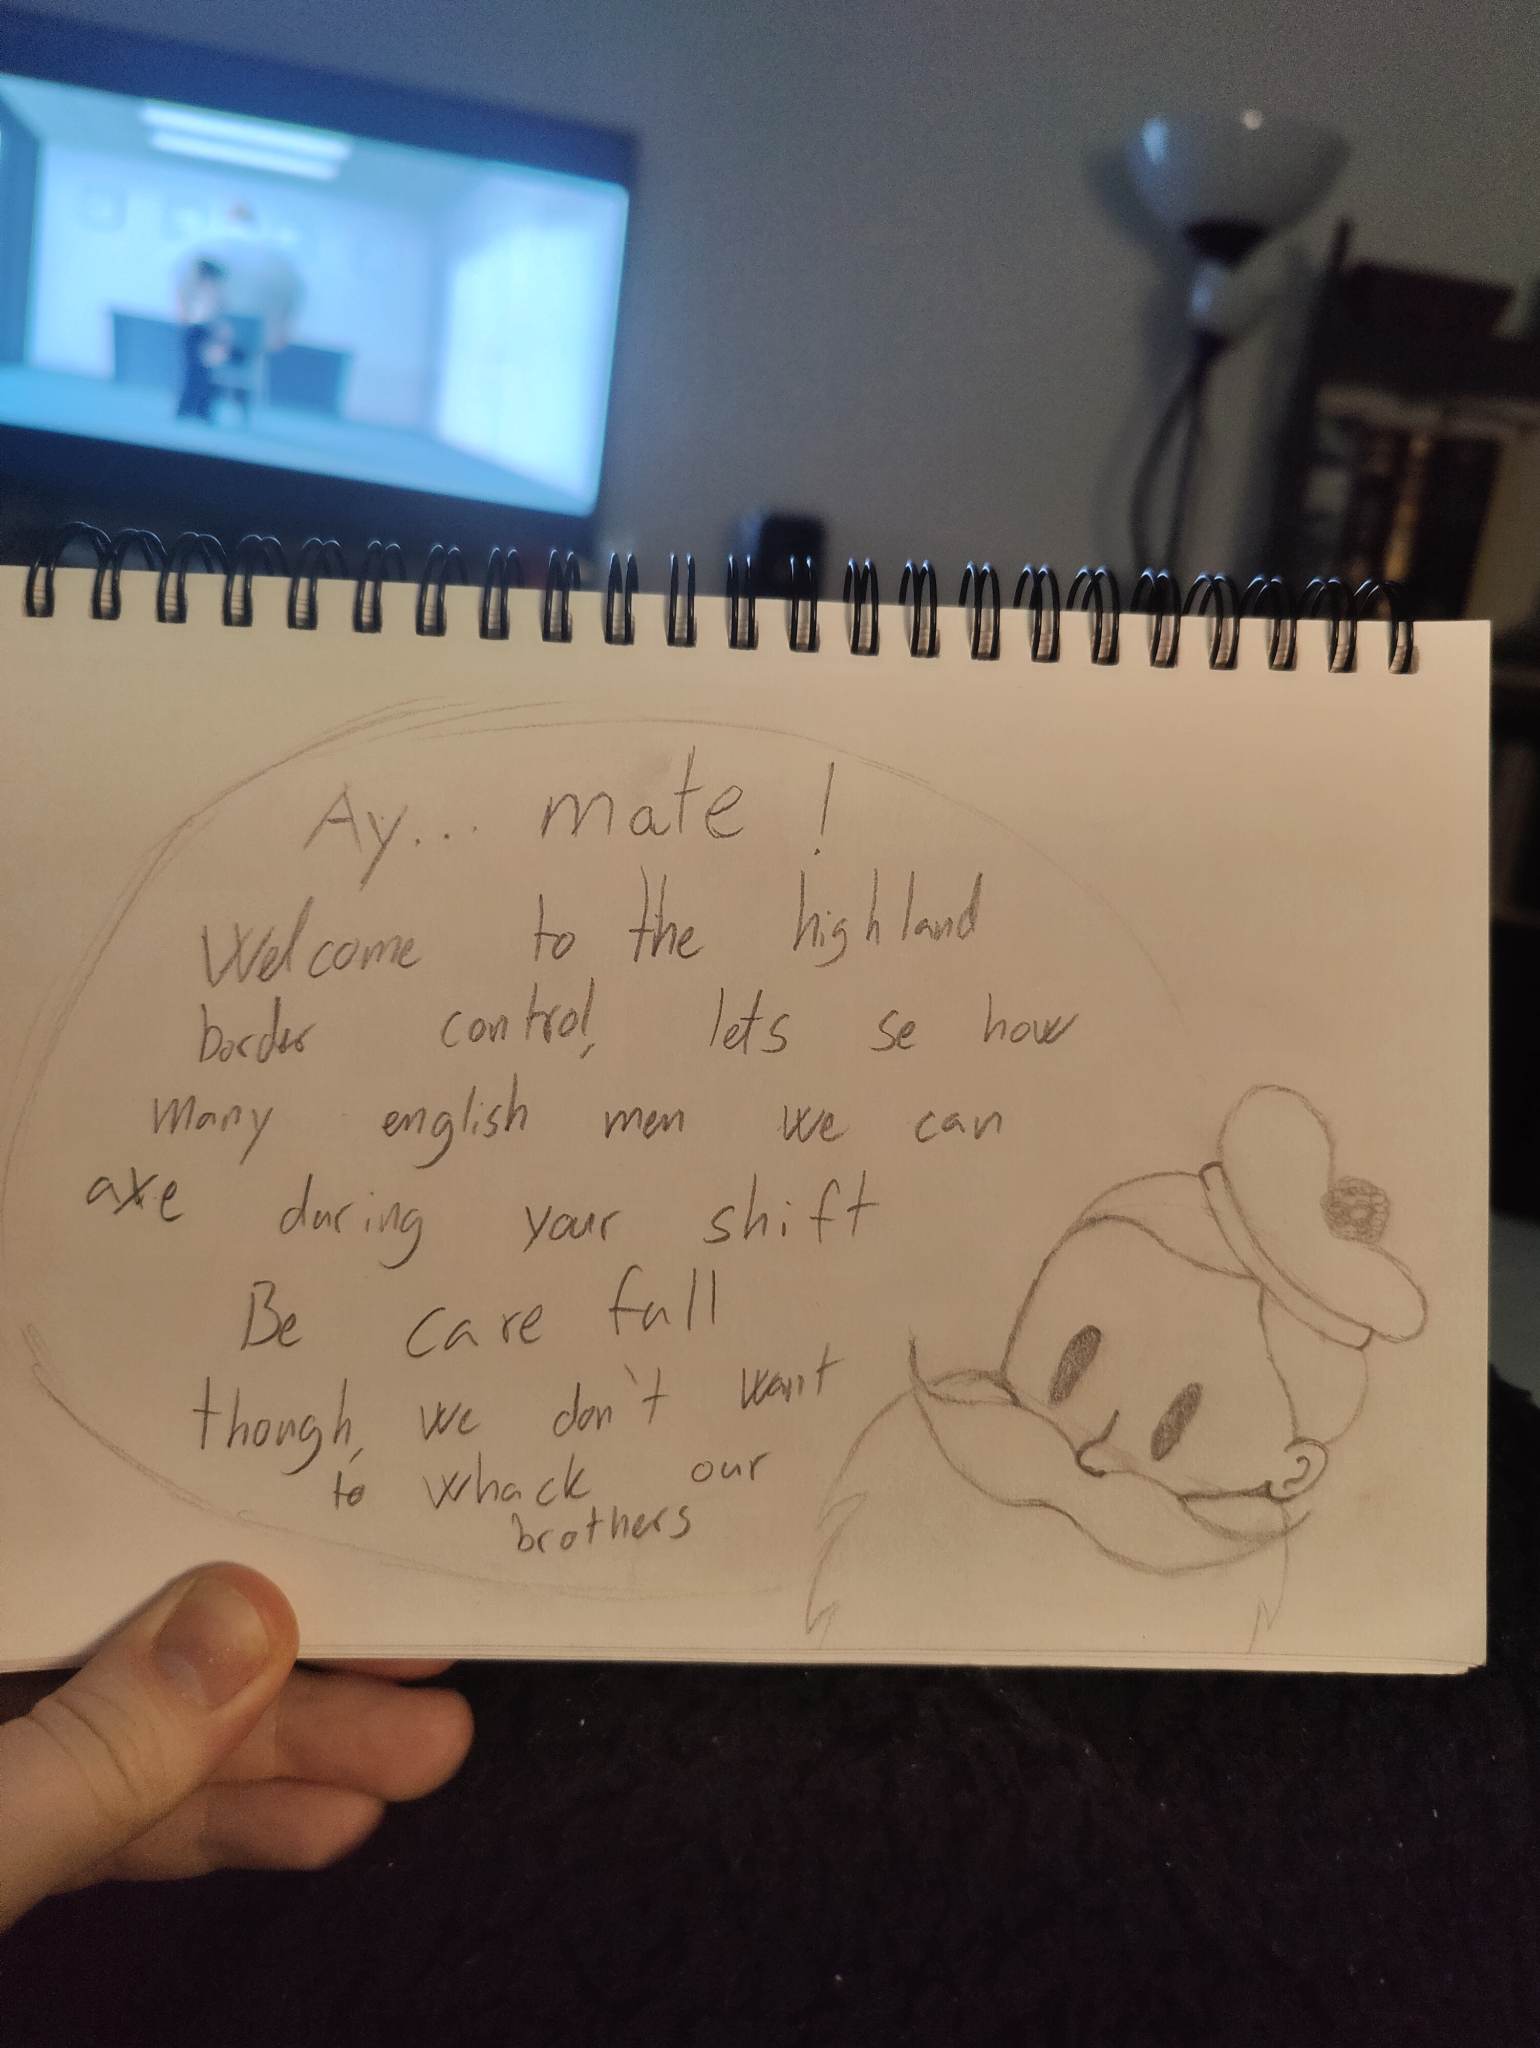 Ay... mate !
Welcome to the highland
border control, lets se how
many english men we can
axe during your shift
Be care full
though, we don't want
to whack our
brothers